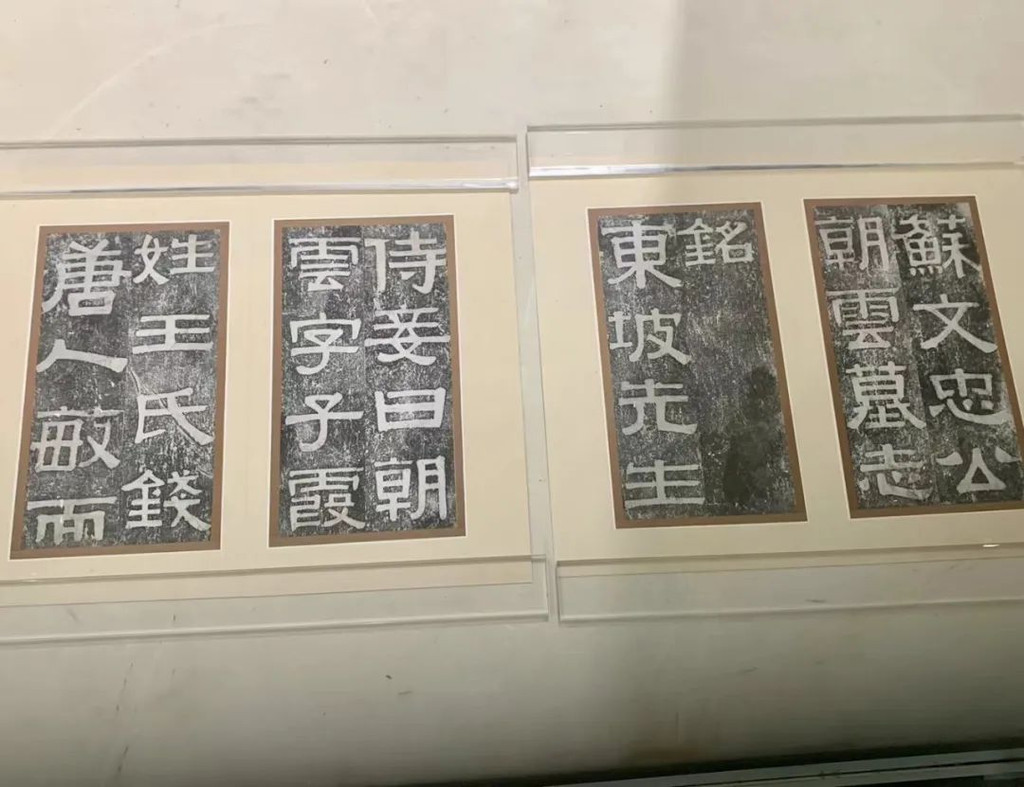 蘇文忠公
朝雲墓志
銘
東坡先生
侍妾曰朝
雲字子霞
姓王氏錢
唐人敏而